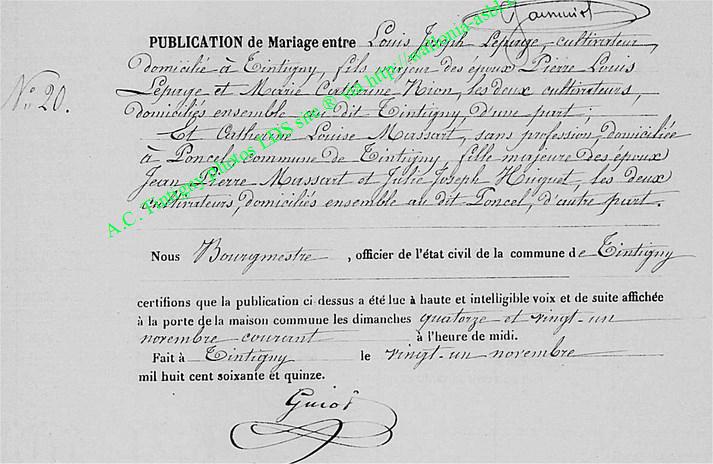 PUBLICATION de Mariage entre Louis Joseph Lepage, cultivateur,
domicilié à Tintigny, fils majeur des époux Pierre Louis
Nº 20.
Lepage et Marie Catherine Kion, les deux cultivateurs,
domiciliés ensemble au dit Tintigny, d'une part;
Et Catherine Louise Massart, sans profession, domiciliée
à Poncel commune de Tintigny, fille majeure des époux
Jean Pierre Massart et Julie Joseph Huguet, les deux
cultivateurs, domiciliés ensemble au dit Poncel, d'autre part.
A.C. Tintigny Photos LDS site ® via http://wallonia-asbl
Nous Bourgmestre, officier de l'état civil de la commune de Tintigny
certifions que la publication ci-dessus a été lue à haute et intelligible voix et de suite affichée
à la porte de la maison commune les dimanches quatorze et vingt-un
novembre courant à l'heure de midi.
Fait à Tintigny le vingt-un novembre
mil huit cent soixante et quinze.